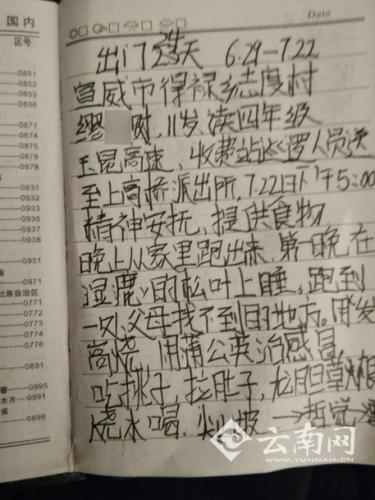 国内
区号
0851
0852
0853
0854
0871
0874
0878
0931
0932
0934
0937
0943
0951
0971
壮族自治区
0771
0772
0773
0774
0776
0891
0991
木齐
0995
0996
0898
Date
24
出门23天 6.29-7.22
宣威市得禄乡志度村
缪 财,11岁读四年级
玉昆高速,收费站巡逻人员送
至上高桥派出所,7.22日下午5:00
精神安抚,提供食物
晚上从家里跑出来.第一晚在
湿鹿鹿的松叶上睡,跑到
一处父母找不到的地方,
高烧 用蒲公英治感冒
吃桃子,拉肚子,龙胆草根
烧水喝.
云南网
WWW.YUNNAN.CN